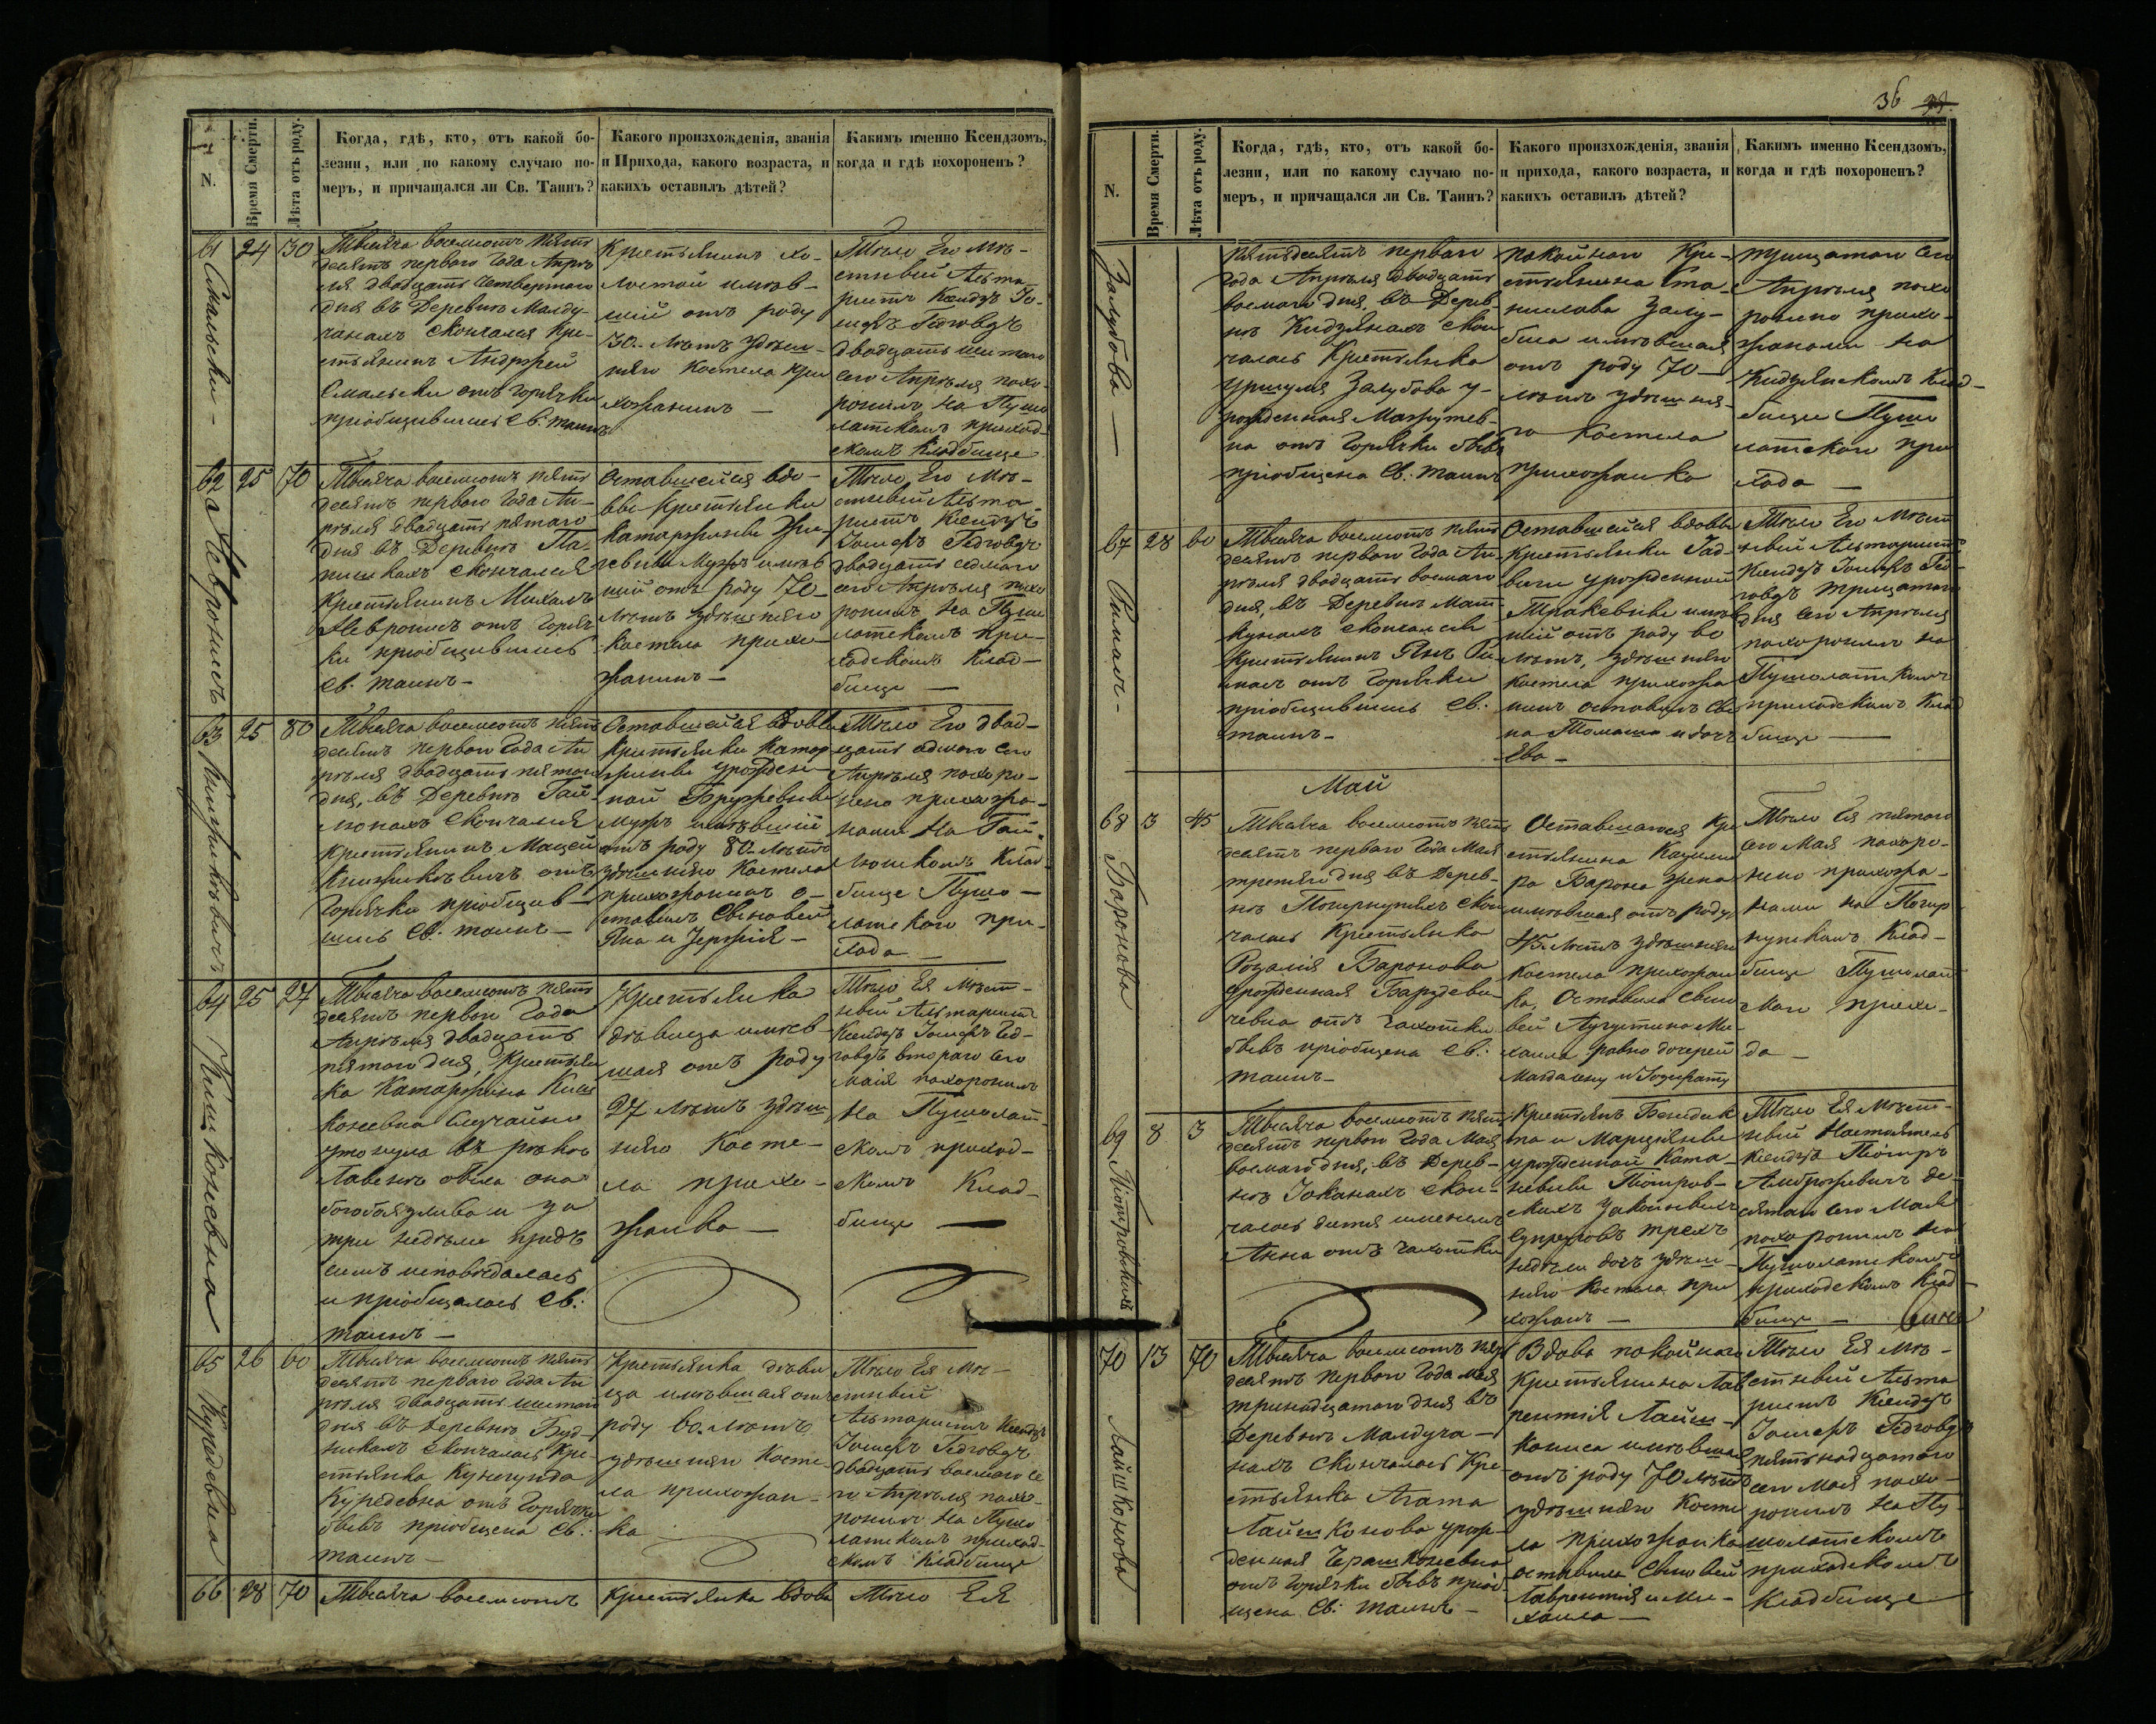 N.
Время Смерти.
Лѣта отъ роду.
Когда, гдѣ, кто, отъ какой бо-
лезни, или по какому случаю по-
меръ, и причащался ли Св. Таинъ?
Какого произхожденія, званія
и Прихода, какого возраста, и
какихъ оставилъ дѣтей?
Какимъ именно Ксендзомъ,
когда и гдѣ похороненъ?
61
24
30
Тысяча восемсотъ пять
десятъ перваго Года Апрѣ
ля двадцать четвертаго
дня въ Деревнѣ Малду-
чахъ скончался Кре-
стьянинъ Андржей
Смальски отъ горячки
пріобщившись Св. таинъ
Крестьянинъ хо-
лостой имѣв-
шій отъ роду
30. лѣтъ здѣш-
няго Костела при
хожанинъ —
Тѣло Его мѣ-
стный Альта
ристъ Ксендзъ Іо-
сифъ Гедговдъ
двадцать шестаго
сего Апрѣля похо-
ронилъ на Пушо
латскомъ приход-
скомъ кладбище
62
25
70
Тысяча восемсотъ пять
десятъ перваго Года Ап-
рѣля двадцать пятаго
дня въ Деревнѣ
скончался
Крестьянинъ Михалъ
отъ горяч-
ки пріобщившись
Св. таинъ —
Оставшейся вдо-
вы Крестьянки
Катаржины
Мужъ имѣв
шій отъ роду 70
лѣтъ здѣшняго
костела прихо-
жанинъ —
Тѣло Его мѣ-
стный Альта-
ристъ Ксендзъ
Іосифъ Гедговдъ
двадцать седмаго
сего Апрѣля похо
ронилъ на Пушо
латскомъ при-
ходскомъ клад-
бище —
63
25
80
Тысяча восемсотъ пять
десятъ перваго Года Ап
рѣля двадцать пятаго
дня, въ Деревнѣ Гай
люнахъ скончался
Крестьянинъ Мацей
отъ
горячки пріобщив-
шись Св. таинъ —
Оставшейся вдовы
Крестьянки Катар
жины урожден-
ной
мужъ имѣвшій
отъ роду 80. лѣтъ
здѣшняго Костела
прихожанинъ о-
ставилъ сыновей
Яна и Іержія —
Тѣло Его двад-
цать седмаго сего
Апрѣля похоро-
нено прихожа-
нами на Гай-
люнскомъ клад-
бище Пушо-
латскаго при-
хода —
64
Кишконевна
25
27
Тысяча восемсотъ пять
десятъ перваго Года
Апрѣля двадцать
пятаго дня, крестьян
ка Катаржина Киш
коневна случайно
утонула въ рѣкѣ
Лавенѣ была она
богобоязлива и за
три недѣли предъ
симъ исповѣдалась
и пріобщалась Св.
таинъ —
Крестьянка
дѣвица имѣв-
шая отъ роду
27 лѣтъ здѣш-
няго Косте-
ла прихо-
жанка —
Тѣло Ея мѣст-
ный Альтаристъ
Ксендзъ Іосифъ Гед-
говдъ втораго сего
маія похоронилъ
на Пушолат-
скомъ приход-
скомъ клад-
бище —
65
26
60
Тысяча восемсотъ пять
десятъ перваго Года Ап
рѣля двадцать шестаго
дня въ деревнѣ Буд-
никахъ скончалась Кре-
стьянка Кунегунда
отъ горячки
бывъ пріобщена Св.
таинъ —
Крестьянка дѣви
ца имѣвшая отъ
роду 60. лѣтъ
здѣшняго Косте
ла прихожан-
ка
Тѣло Ея мѣ-
стный
Альтаристъ Ксендзъ
Іосифъ Гедговдъ
двадцать восмаго се
го Апрѣля похо-
ронилъ на Пушо
латскомъ приход-
скомъ кладбище
66
28
70
Тысяча восемсотъ
крестьянка вдова
Тѣло Ея
36
N.
Время Смерти.
Лѣта отъ роду.
Когда, гдѣ, кто, отъ какой бо-
лезни, или по какому случаю по-
меръ, и причащался ли Св. Таинъ?
Какого произхожденія, званія
и прихода, какого возраста, и
какихъ оставилъ дѣтей?
Какимъ именно Ксендзомъ,
когда и гдѣ похороненъ?
Залубова —
пятьдесятъ перваго
года Апрѣля двадцать
восмаго дня, въ Дерев
нѣ Кидзянахъ скон
чалась Крестьянка
Уршуля Залубова у-
рожденная
на отъ горячки бывъ
пріобщена Св. таинъ
покойнаго Кре-
стьянина Ста-
нислава Залу-
баса имѣвшая
отъ роду 70
лѣтъ здѣшня-
го Костела
прихожанка
тридцатаго сего
Апрѣля похо
ронено прихо-
жанами на
Кидзянскомъ клад-
бище Пушо
латскаго при
хода —
67
28
60
Тысяча восемсотъ пять
десятъ перваго Года Ап
рѣля двадцать восмаго
дня, въ Деревнѣ Мат-
кунахъ скончался
крестьянинъ Янъ
отъ горячки
пріобщившись Св.
таинъ —
Оставшейся вдовы
Крестьянки Яд-
виги урожденной
имѣв
шій отъ роду 60
лѣтъ, здѣшняго
костела прихожа
нинъ оставилъ сы
на Томаша и дочь
Еву —
Тѣло Его мѣст
ный Альтаристъ
Ксендзъ Іосифъ Гед-
говдъ тридцатаго
дня сего Апрѣля
похоронилъ на
Пушолатскомъ
приходскомъ клад
бище —
Май
68
Баронова
3
45
Тысяча восемсотъ пять
десятъ перваго Года Мая
третяго дня въ Дерев-
нѣ скон
чалась Крестьянка
Розалія Баронова
урожденная
отъ чахотки
бывъ пріобщена Св.
таинъ —
Оставшагося Кре
стьянина Казими
ра Барона жена
имѣвшая отъ роду
45. лѣтъ здѣшняго
костела прихожан
ка, Оставила сыно
вей Августина Ми-
хаила равно дочерей
Магдалену и
Тѣло Ея пятаго
сего Мая похоро-
нено прихожа-
нами на
клад-
бище Пушолат
скаго прихо-
да —
69
8
3
Тысяча восемсотъ пять
десятъ перваго Года Мая
восмаго дня, въ Дерев-
нѣ Іоканахъ скон-
чалась дитя именемъ
Анна отъ чахотки
Крестьянъ Бенедик
та и Марціянны
урожденной
Піотров-
скихъ законныхъ
супруговъ трехъ
недѣли дочь здѣш-
няго костела при
хожанъ —
Тѣло Ея мѣст-
ный Настоятель
Ксендзъ Піотръ
Амброжевичъ де-
сятаго сего Мая
похоронилъ на
Пушолатскомъ
приходскомъ клад-
бище —
70
Лайшконова
13
70
Тысяча восемсотъ пять
десятъ перваго Года мая
тринадцатаго дня въ
Деревнѣ Малдуча-
нахъ скончалась Кре-
стьянка Агата
Лайшконова урож-
денная Черашконевна
отъ горячки бывъ пріоб-
щена Св. таинъ —
Вдова покойнаго
Крестьянина Лав
рентія Лайш-
кониса имѣвшая
отъ роду 70 лѣтъ
здѣшняго Косте
ла прихожанка
оставила сыновей
Лаврентія и Ми-
хаила —
Тѣло Ея мѣ-
стный Альта
ристъ Ксендзъ
Іосифъ Гедговдъ
пятьнадцатаго
сего Мая похо-
ронилъ на Пу-
шолатскомъ
приходскомъ
кладбище